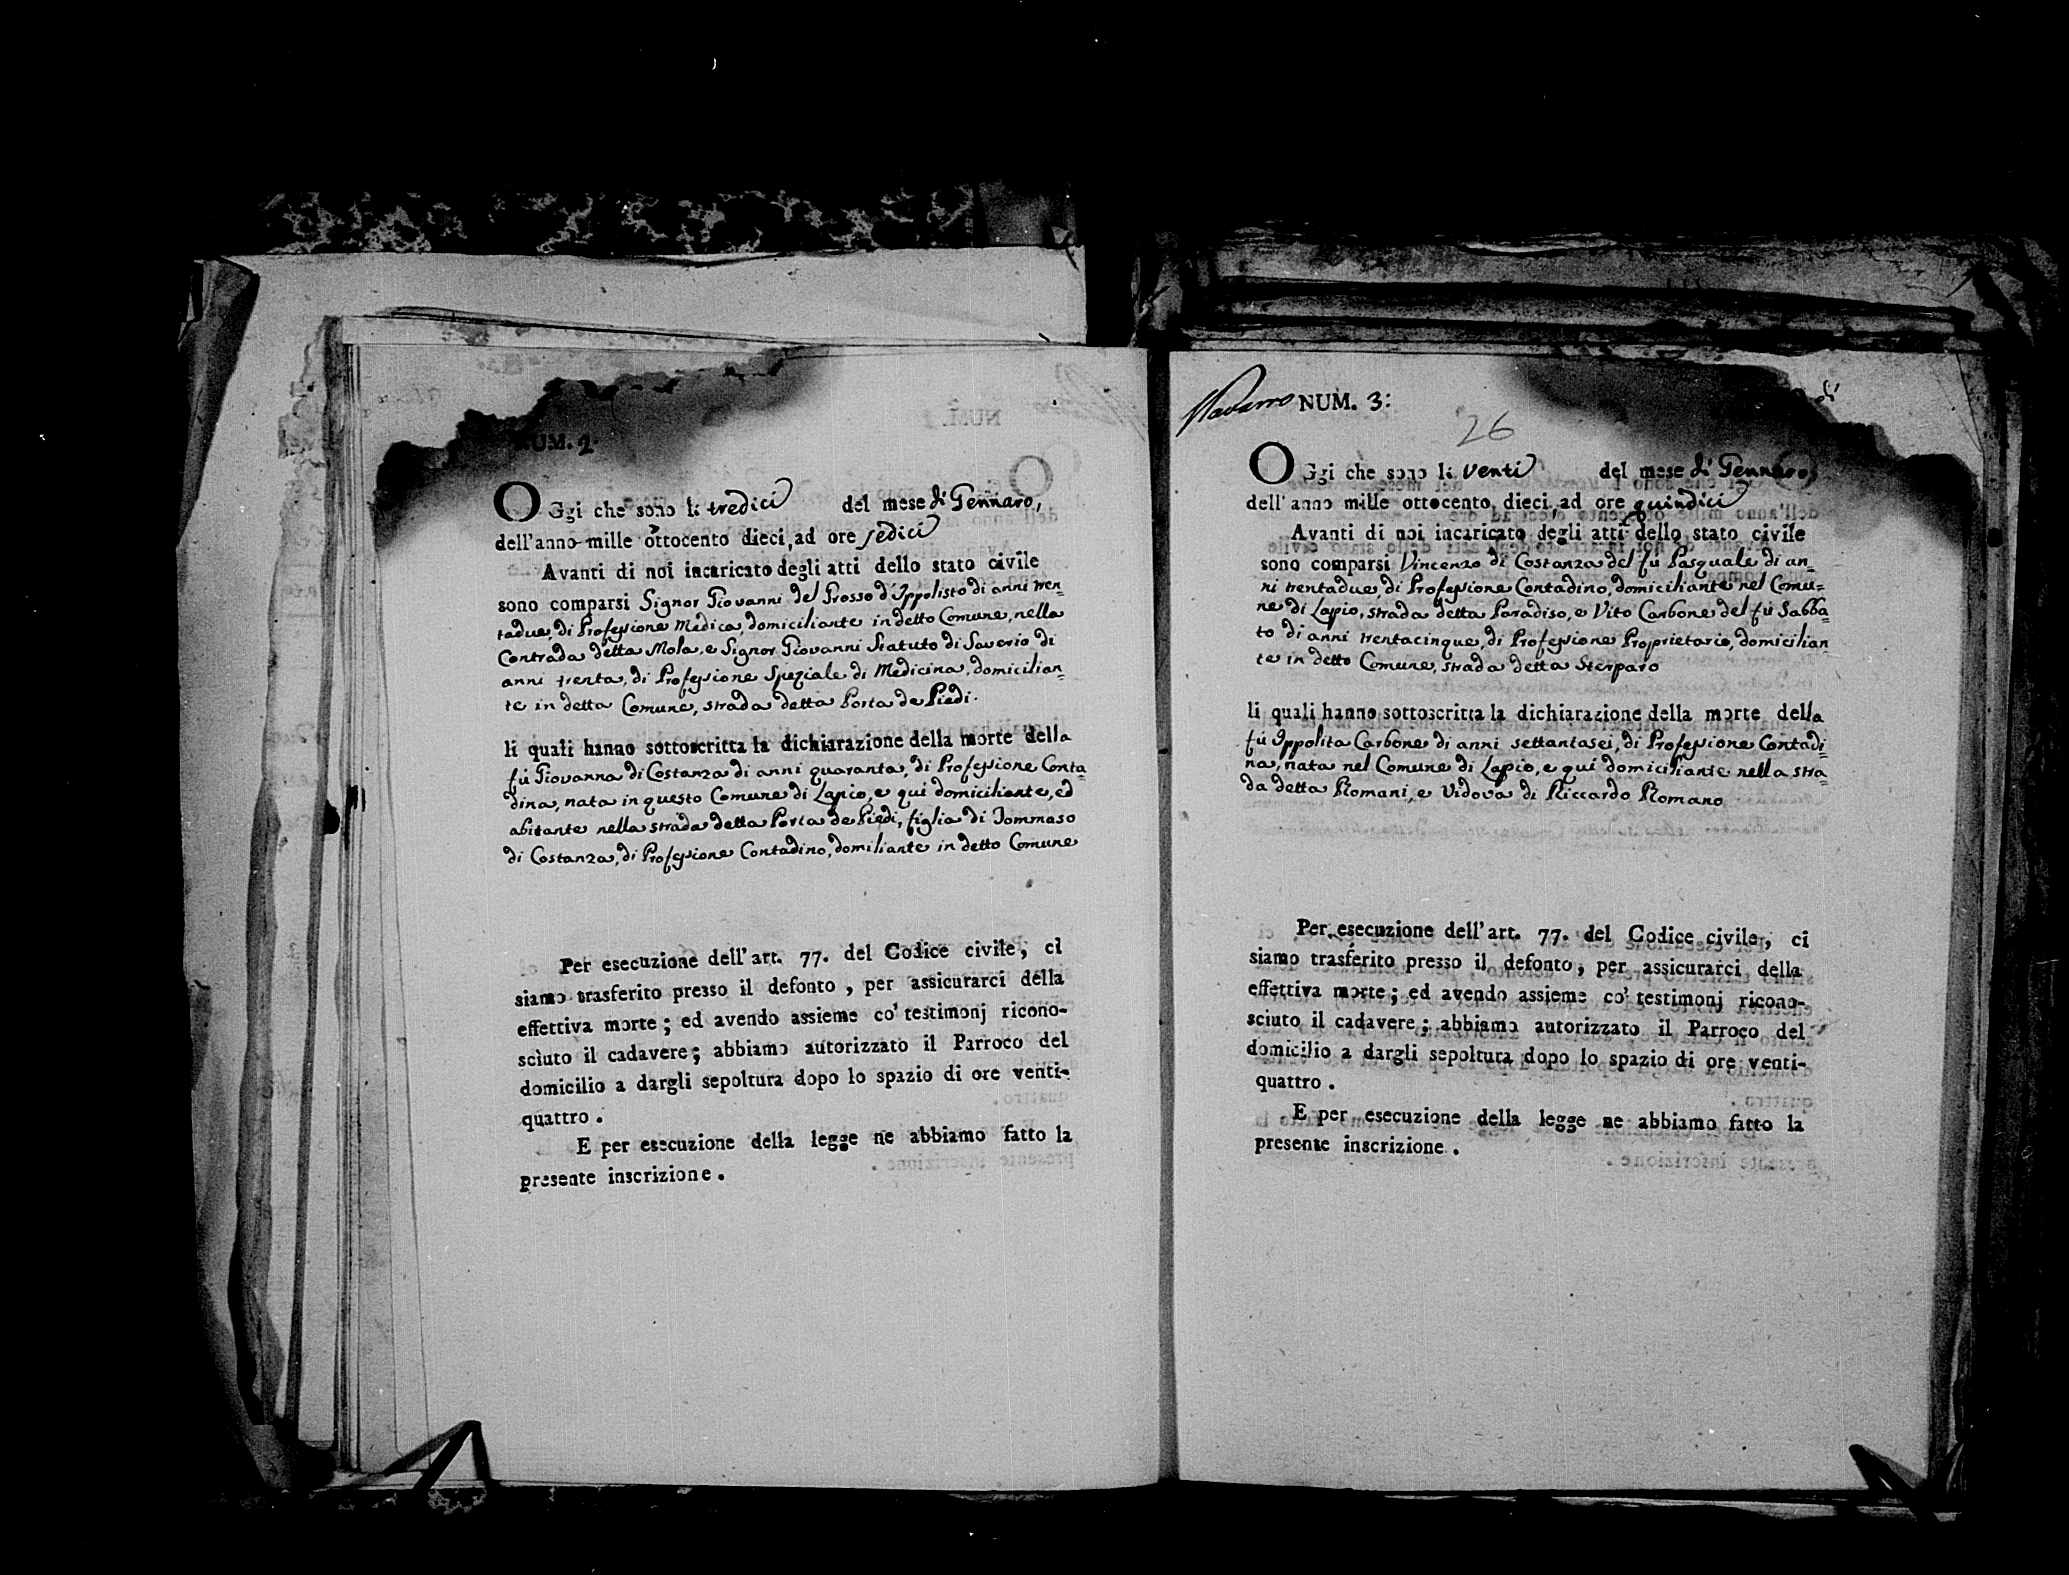 NUM. 2.
OGgi che sono li tredici del mese di Gennaro,
dell'anno mille ottocento dieci, ad ore sedici
Avanti di noi incaricato degli atti dello stato civile
sono comparsi Signor Giovanni del Grosso d'Ippolisto di anni tren=
tadue, di Professione Medica, domiciliante in detto Comune, nella
Contrada detta Mola, e Signor Giovanni Statuto di Saverio di
anni trenta, di Professione Speziale di Medicina, domicilian=
te in detta Comune, strada detta Porta de Piedi.
li quali hanno sottoscritta la dichiarazione della morte della
fù Giovanna di Costanza di anni quaranta, di Professione Conta=
dina, nata in questo Comune di Lapio, e qui domiciliante, ed
abitante nella strada detta Porta de Piedi, figlia di Tommaso
di Costanza, di Professione Contadino, domiliante in detto Comune
Per esecuzione dell'art. 77. del Codice civile, ci
siamo trasferito presso il defonto, per assicurarci della
effettiva morte; ed avendo assieme co' testimonj ricono-
sciuto il cadavere; abbiamo autorizzato il Parroco del
domicilio a dargli sepoltura dopo lo spazio di ore venti-
quattro.
E per esecuzione della legge ne abbiamo fatto la
presente inscrizione.
Navarro NUM. 3:
26
OGgi che sono li venti del mese di Gennaro,
dell'anno mille ottocento dieci, ad ore quindici
Avanti di noi incaricato degli atti dello stato civile
sono comparsi Vincenzo di Costanza del fù Pasquale di an=
ni trentadue, di Professione Contadino, domiciliante nel Comu=
ne di Lapio, strada detta Paradiso, e Vito Carbone del fù Sabba
to di anni trentacinque, di Professione Proprietario, domicilian=
te in detto Comune, strada detta Sterparo
li quali hanno sottoscritta la dichiarazione della morte della
fù Ippolita Carbone di anni settantasei, di Professione Contadi=
na, nata nel Comune di Lapio, e qui domiciliante nella stra=
da detta Romani, e Vidova di Riccardo Romano
Per esecuzione dell'art. 77. del Codice civile, ci
siamo trasferito presso il defonto, per assicurarci della
effettiva morte; ed avendo assieme co' testimonj ricono-
sciuto il cadavere; abbiamo autorizzato il Parroco del
domicilio a dargli sepoltura dopo lo spazio di ore venti-
quattro.
E per esecuzione della legge ne abbiamo fatto la
presente inscrizione.